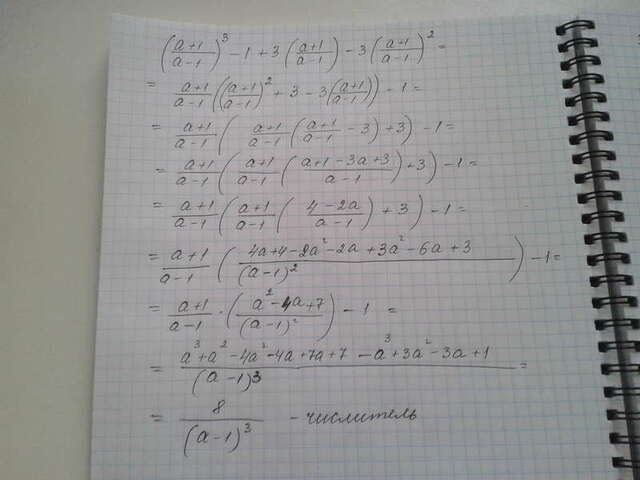 ((a+1)/(a-1))³ - 1 + 3((a+1)/(a-1)) - 3((a+1)/(a-1))² =
= (a+1)/(a-1) (((a+1)/(a-1))² + 3 - 3((a+1)/(a-1))) - 1 =
= (a+1)/(a-1) ((a+1)/(a-1) ((a+1)/(a-1) - 3) + 3) - 1 =
= (a+1)/(a-1) ((a+1)/(a-1) ((a+1-3a+3)/(a-1)) + 3) - 1 =
= (a+1)/(a-1) ((a+1)/(a-1) ((4-2a)/(a-1)) + 3) - 1 =
= (a+1)/(a-1) ((4a+4-2a²-2a+3a²-6a+3)/(a-1)²) - 1 =
= (a+1)/(a-1) · ((a²-4a+7)/(a-1)²) - 1 =
= (a³+a²-4a²-4a+7a+7-a³+3a²-3a+1)/(a-1)³ =
= 8/(a-1)³ - числитель